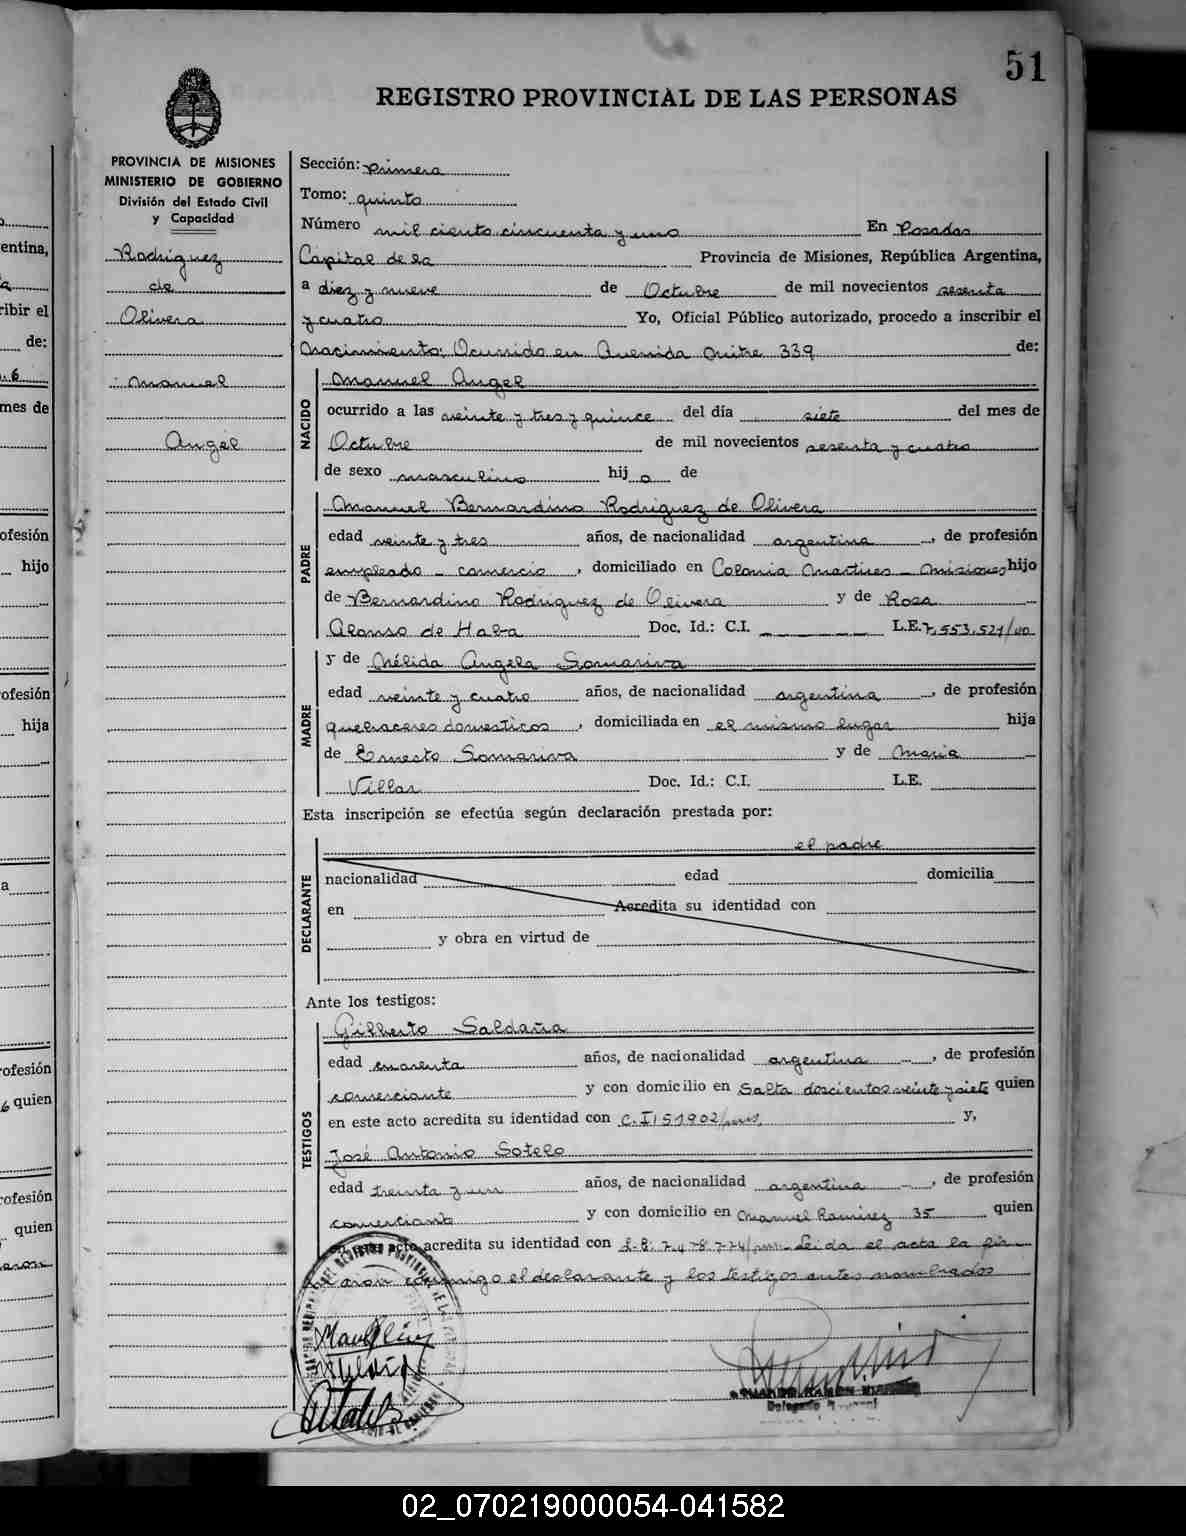 51
REGISTRO PROVINCIAL DE LAS PERSONAS
PROVINCIA DE MISIONES
MINISTERIO DE GOBIERNO
División del Estado Civil
y Capacidad
Rodriguez
de
Olivera
Manuel
Angel
Sección: Primera
Tomo: quinto
Número mil ciento cincuenta y uno En Posadas
Capital de la Provincia de Misiones, República Argentina,
a diez y nueve de Octubre de mil novecientos sesenta
y cuatro Yo, Oficial Público autorizado, procedo a inscribir el
Nacimiento: Ocurrido en Avenida Mitre 339 de:
NACIDO
Manuel Angel
ocurrido a las veinte y tres y quince del día siete del mes de
Octubre de mil novecientos sesenta y cuatro
de sexo masculino hijo de
PADRE
Manuel Bernardino Rodriguez de Olivera
edad veinte y tres años, de nacionalidad argentina, de profesión
empleado - comercio, domiciliado en Colonia Martires - Misiones hijo
de Bernardino Rodriguez de Olivera y de Rosa
Alonso de Haba Doc. Id.: C.I. L.E. 7.553.521/
MADRE
y de Nélida Angela Somariva
edad veinte y cuatro años, de nacionalidad argentina, de profesión
quehaceres domesticos, domiciliada en el mismo lugar hija
de Ernesto Somariva y de Maria
Villar Doc. Id.: C.I. L.E.
Esta inscripción se efectúa según declaración prestada por:
DECLARANTE
el padre
nacionalidad edad domicilia
en Acredita su identidad con
y obra en virtud de
Ante los testigos:
TESTIGOS
Gilberto Saldaña
edad cuarenta años, de nacionalidad argentina, de profesión
comerciante y con domicilio en Salta doscientos veinte y siete quien
en este acto acredita su identidad con C.I. 51902/ y,
José Antonio Sotelo
edad treinta y un años, de nacionalidad argentina, de profesión
comerciante y con domicilio en Manuel Ramirez 35 quien
acto acredita su identidad con Leida el acta la fir-
maron conmigo el declarante y los testigos antes nombrados
02_070219000054-041582